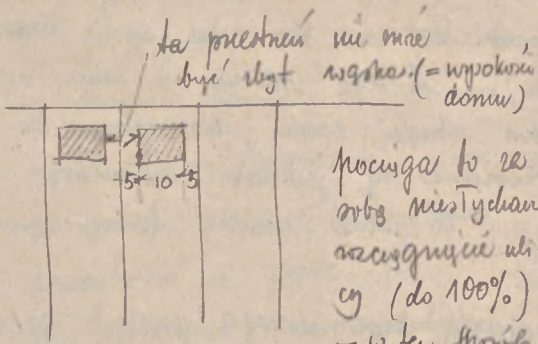 ta przestrzeń nie może
być zbyt wąska (= wysokości
domu)
5 10 5
pociąga to za
sobą niesłychane
rozciągnięcie uli
cy (do 100%)